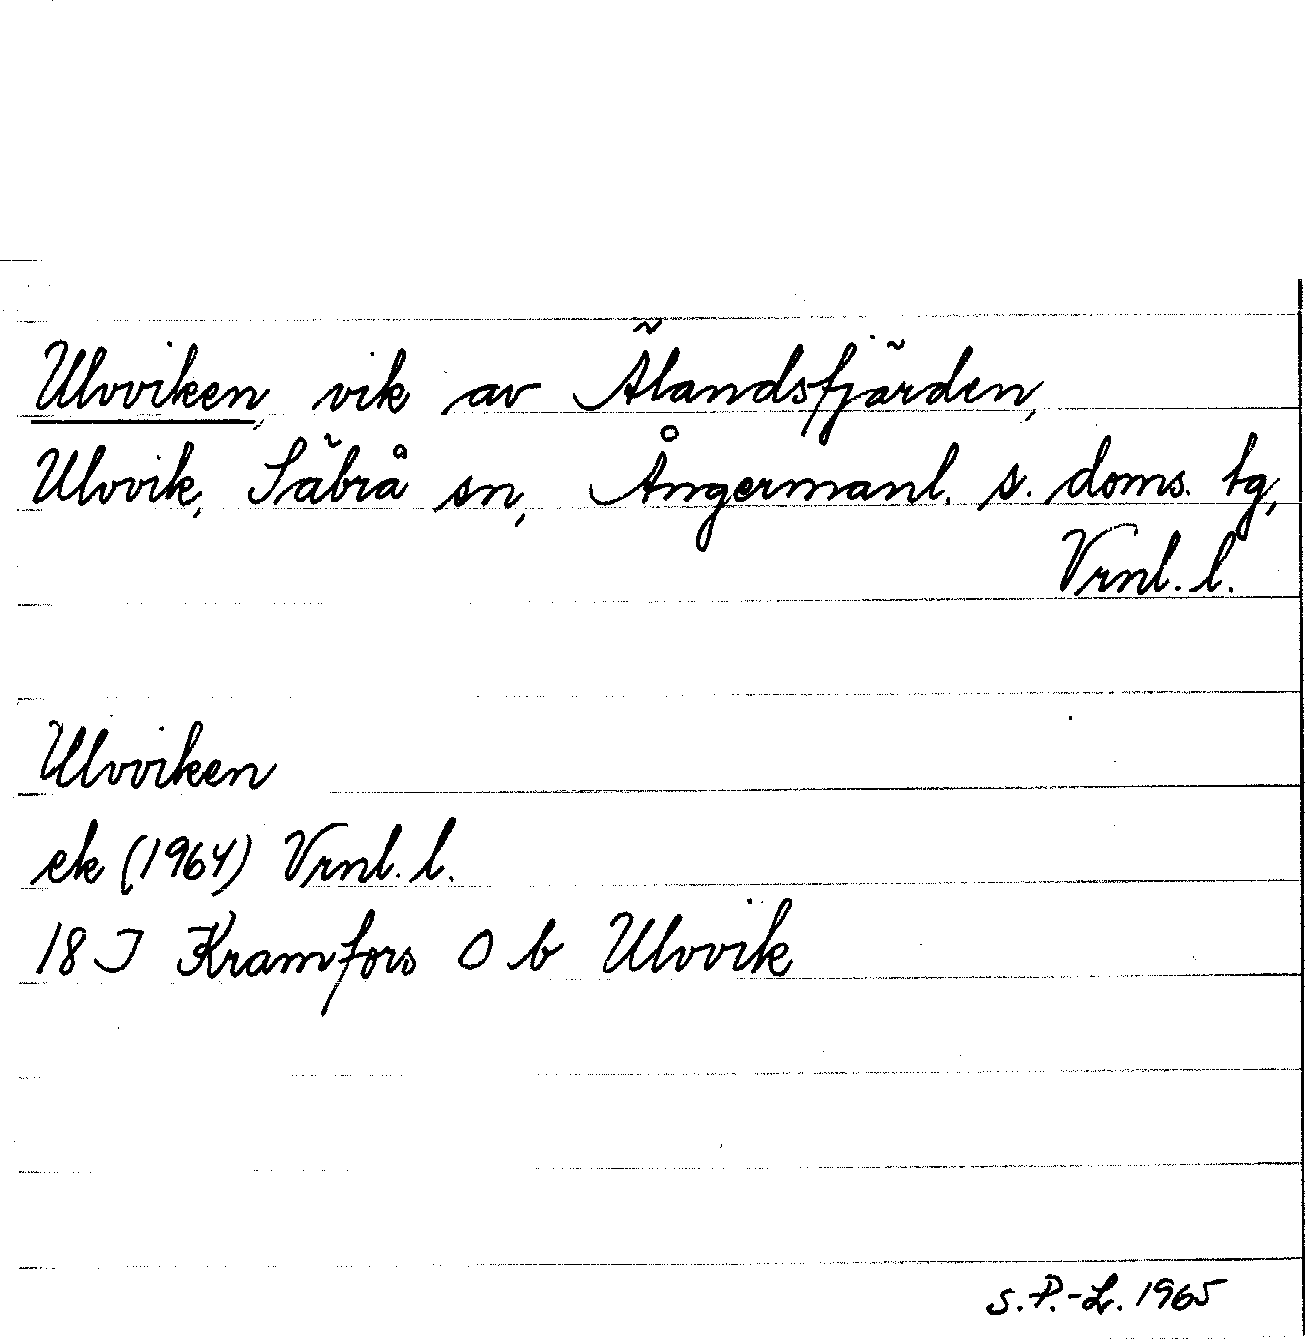 Ulvviken, vik av Älandsfjärden,
Ulvvik, Säbrå sn, Ångermanl. s. doms. tg,
Vrnl. l.
Ulvviken
ek (1964) Vrnl. l.
18 J Kramfors O b Ulvvik
S.P.-L. 1965